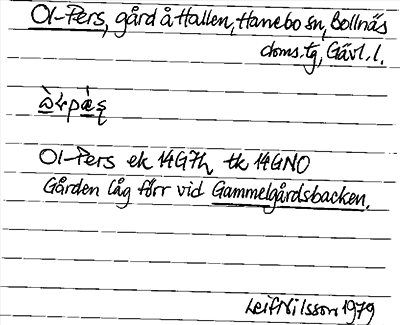 Ol-Pers, gård å Hallen, Hanebo sn, Bollnäs
doms.tg, Gävl.l.
Ol-Pers ek 14G7h, tk 14GNO
Gården låg förr vid Gammelgårdsbacken.
Leif Nilsson 1979